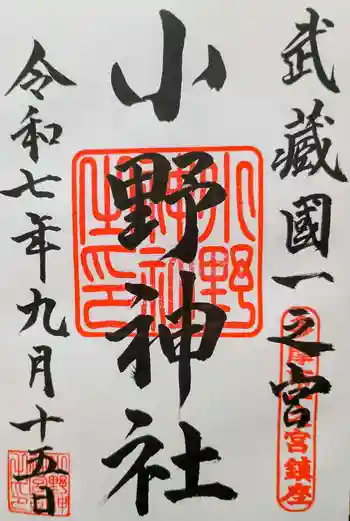 武藏國一之宮
小野神社
小野神社之印
令和七年九月十五日
宮鎮座